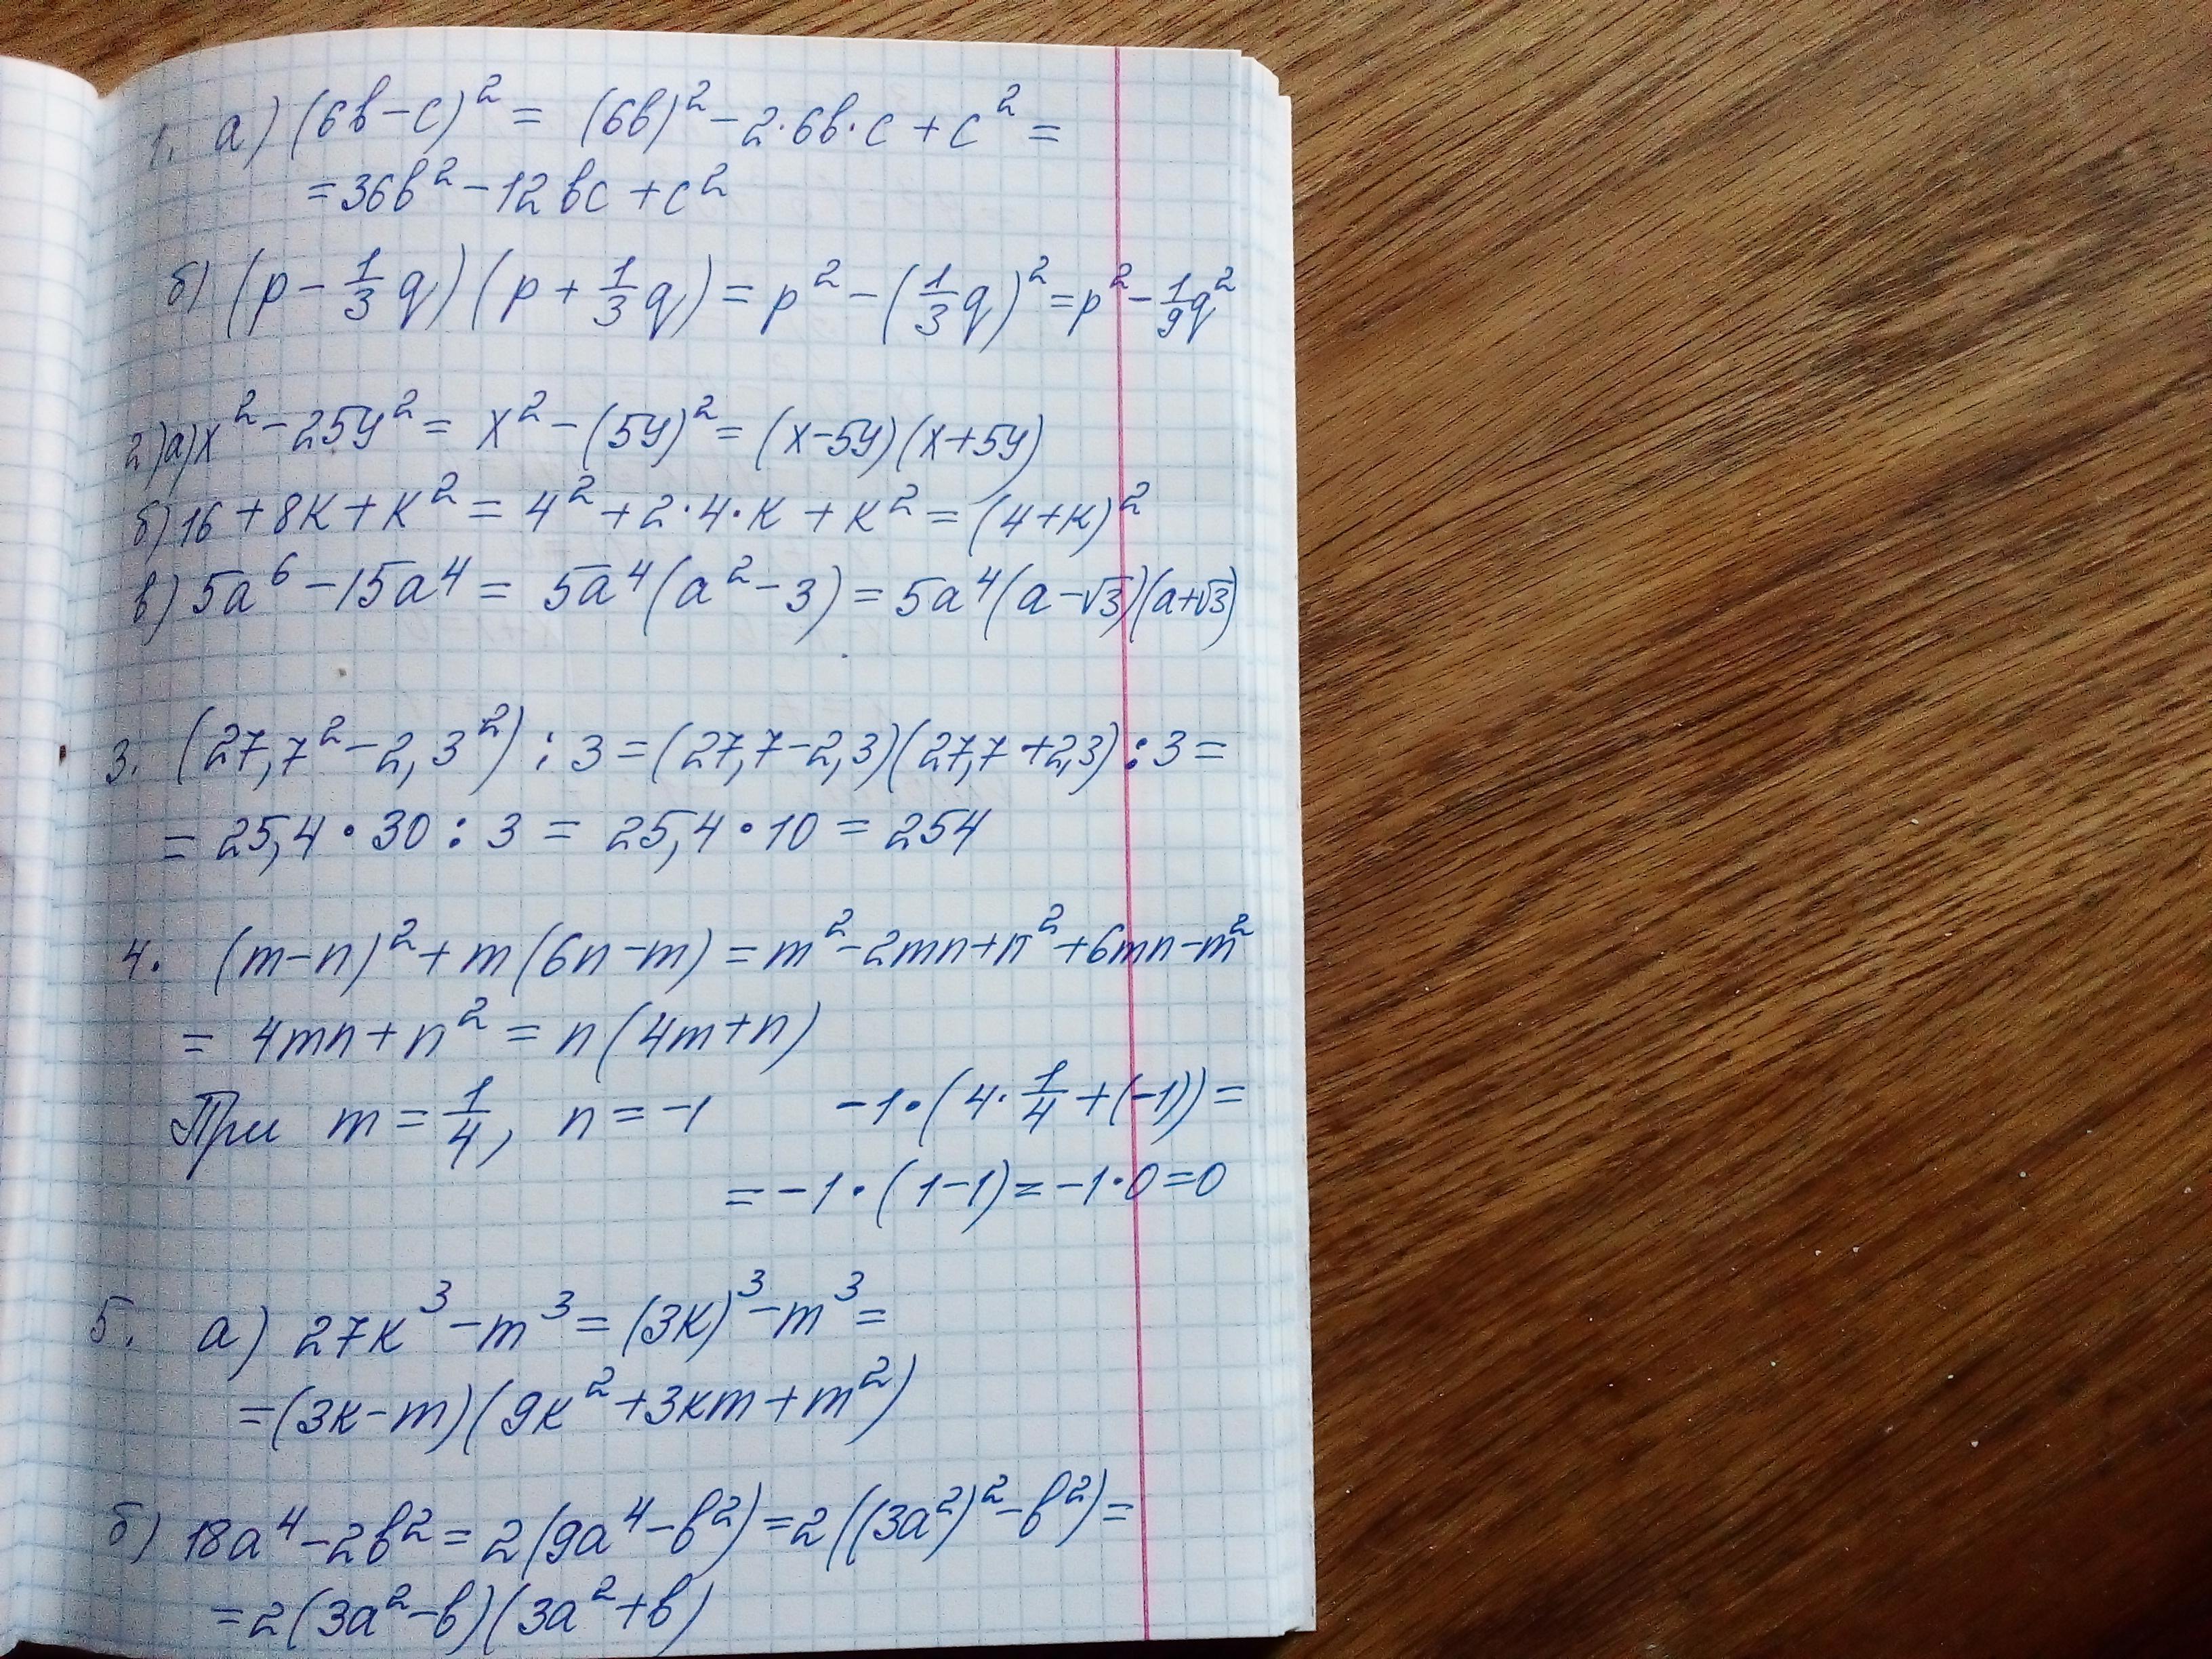 1. а) (6b-c)² = (6b)² - 2·6b·c + c² =
= 36b² - 12bc + c²
б) (p - 1/3 q)(p + 1/3 q) = p² - (1/3 q)² = p² - 1/9 q²
2) а) x² - 25y² = x² - (5y)² = (x-5y)(x+5y)
б) 16 + 8k + k² = 4² + 2·4·k + k² = (4+k)²
в) 5a⁶ - 15a⁴ = 5a⁴(a² - 3) = 5a⁴(a-√3)(a+√3)
3. (27,7² - 2,3²) : 3 = (27,7-2,3)(27,7+2,3) : 3 =
= 25,4 · 30 : 3 = 25,4 · 10 = 254
4. (m-n)² + m(6n-m) = m² - 2mn + n² + 6mn - m²
= 4mn + n² = n(4m+n)
При m = 1/4, n = -1 -1·(4·1/4+(-1)) =
= -1·(1-1) = -1·0 = 0
5. а) 27k³ - m³ = (3k)³ - m³ =
= (3k-m)(9k² + 3km + m²)
б) 18a⁴ - 2b² = 2(9a⁴ - b²) = 2((3a²)² - b²) =
= 2(3a² - b)(3a² + b)